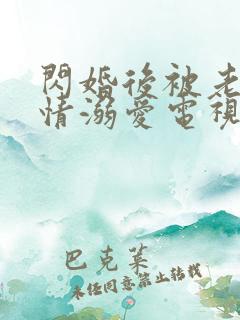 閃婚後被老
情溺愛電視
巴克萊
未經同意禁止轉載